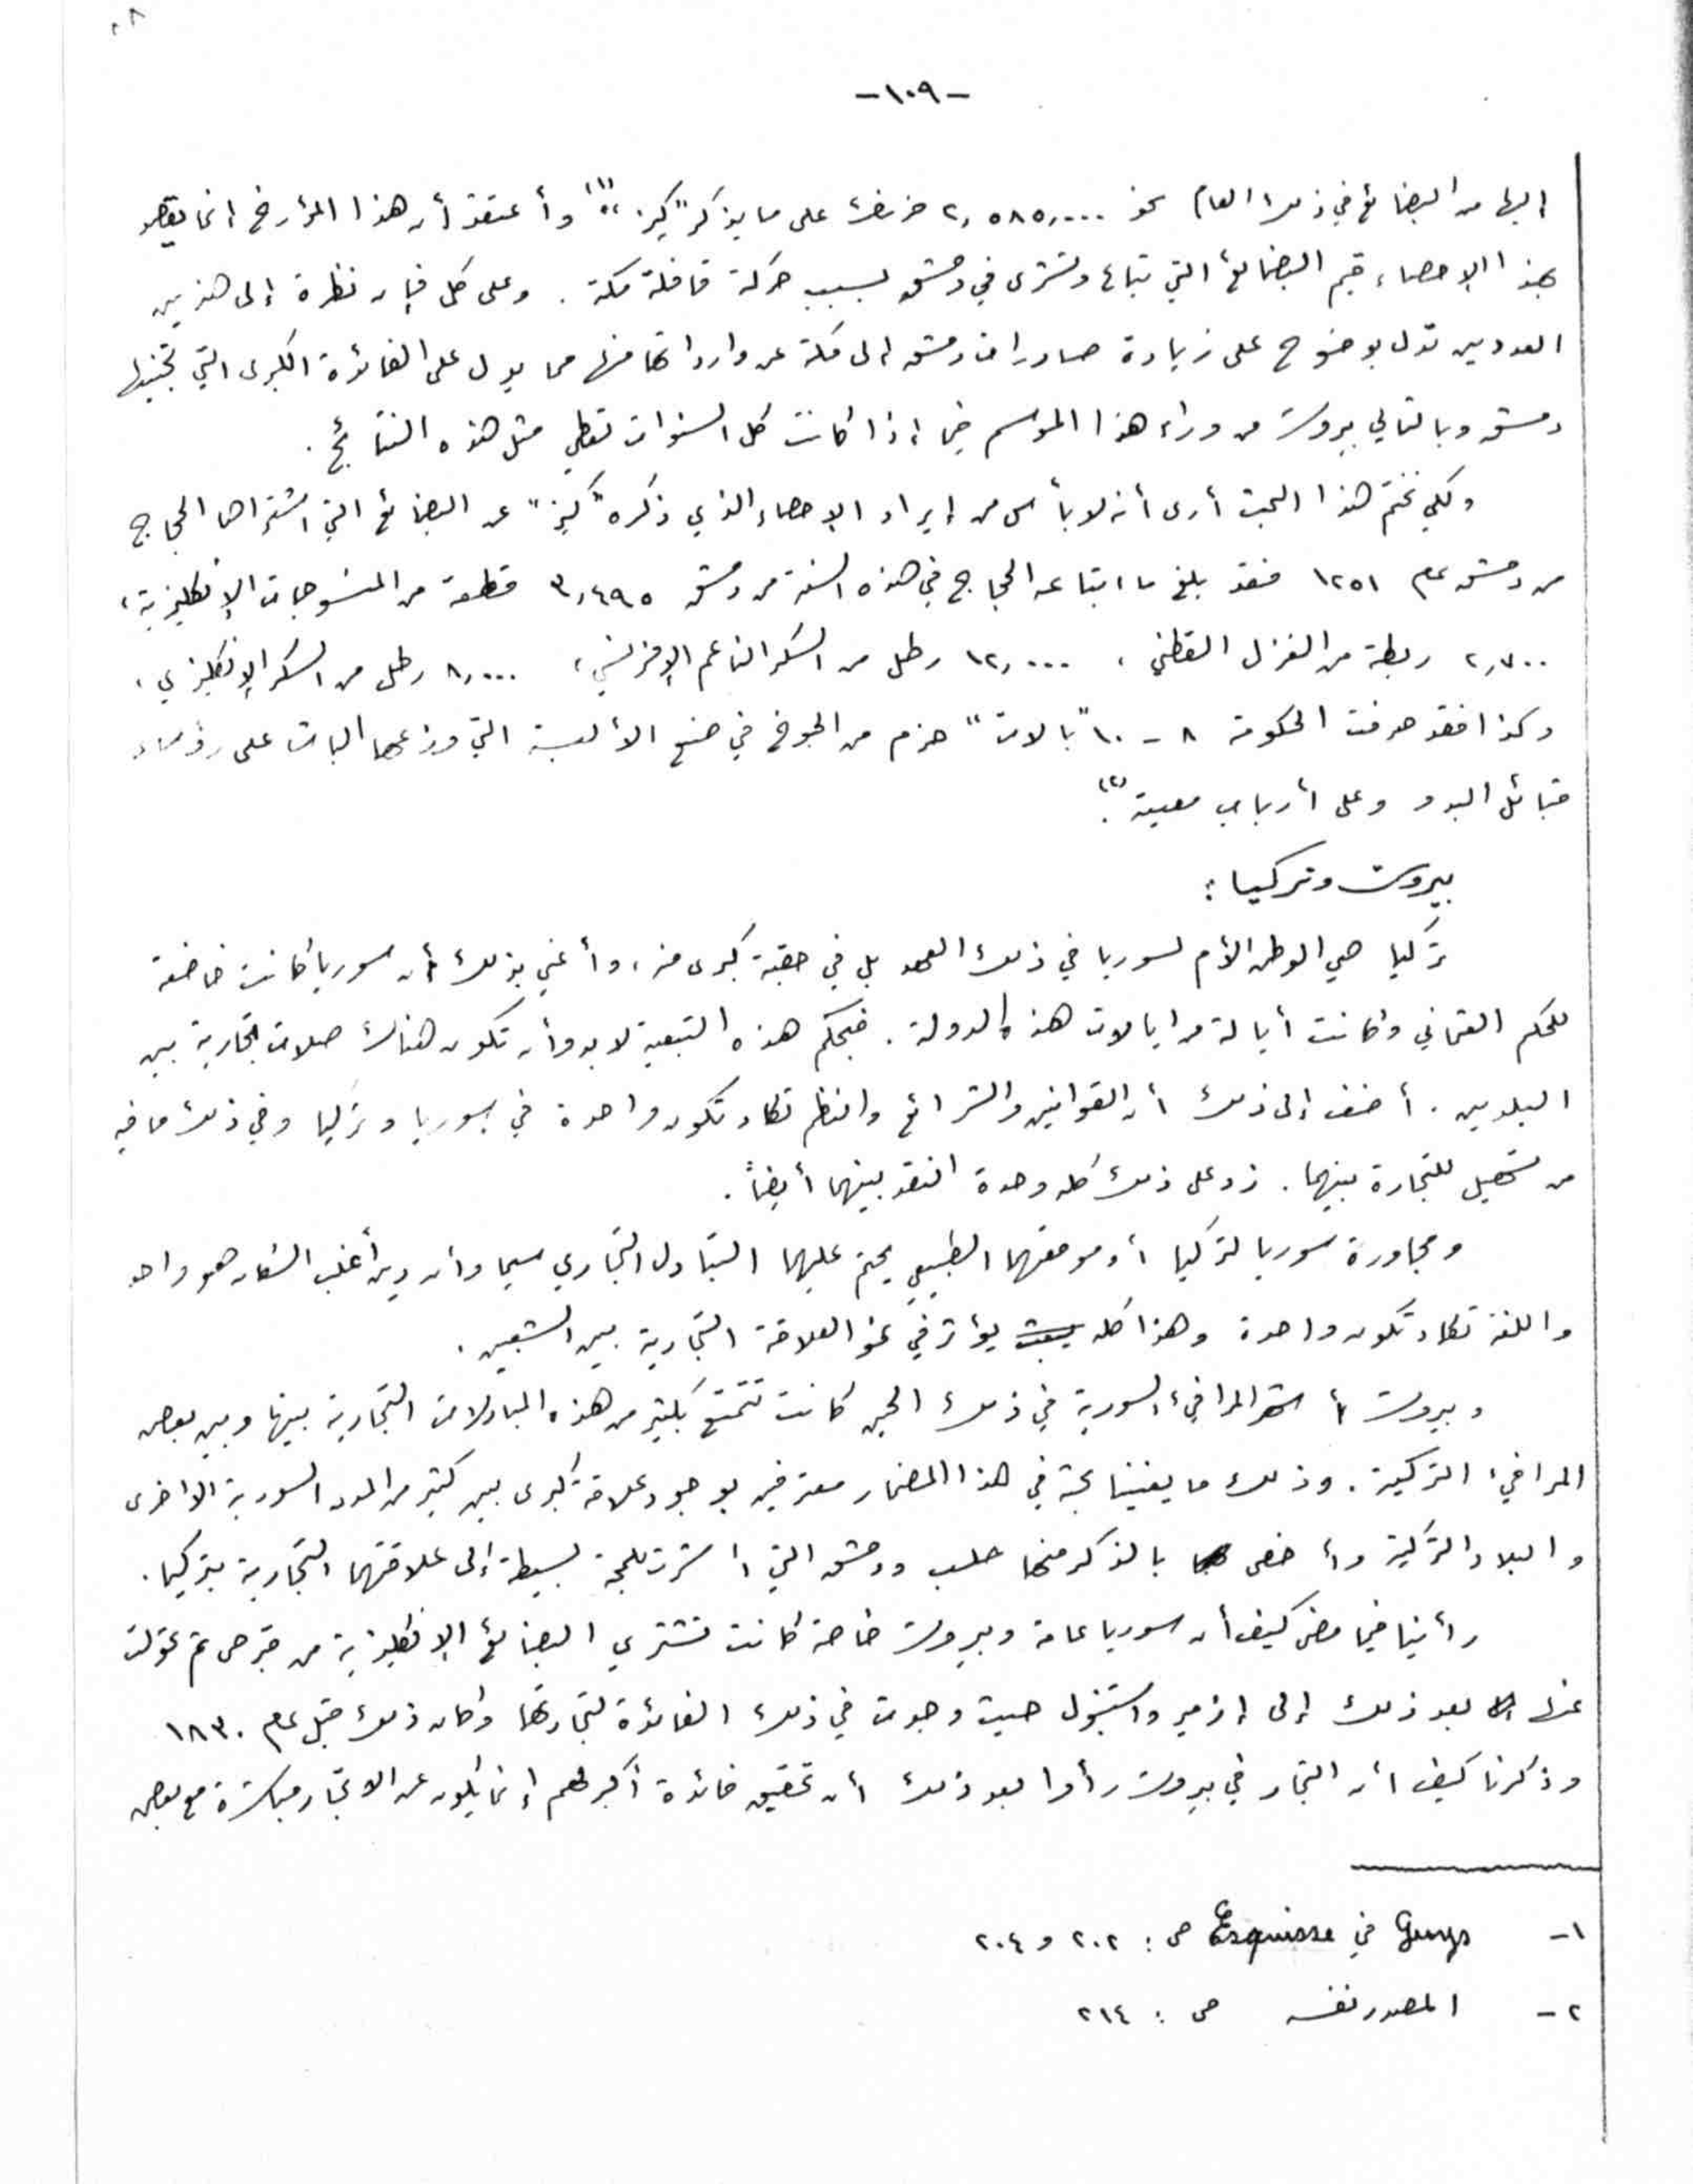 -١٠٩-
إليها من البضائع في ذلك العام نحو ٢,٥٨٥,٠٠٠ فرنك على ما يذكر "كيز"(١) وأعتقد أن هذا المؤرخ إنما يقصد
بهذا الإحصاء قيم البضائع التي تباع وتشترى في دمشق بسبب حركة قافلة مكة . وعلى كل فإن نظرة إلى هذين
العددين تدل بوضوح على زيادة صادرات دمشق إلى مكة عن وارداتها منها مما يدل على الفائدة الكبرى التي تجنيها
دمشق وبالتالي بيروت من وراء هذا الموسم فيما إذا كانت كل السنوات تعطي مثل هذه النتائج .
ولكي نختم هذا البحث أرى أنه لا بأس من إيراد الإحصاء الذي ذكره "كيز" عن البضائع التي اشتراها الحجاج
من دمشق عام ١٢٥١ فقد بلغ ما ابتاعه الحجاج في هذه السنة من دمشق ٣,٤٩٥ قطعة من المنسوجات الإنكليزية ،
٢,٧٠٠ ربطة من الغزل القطني ، ١٢,٠٠٠ رطل من السكر الناعم الإفرنسي ، ٨,٠٠٠ رطل من السكر الإنكليزي ،
وكذا فقد صرفت الحكومة ٨ - ١٠ "بالات" حزم من الجوخ في صنع الألبسة التي وزعها الباشا على رؤساء
قبائل البدو وعلى أرباب معيته(٢).
بيروت وتركيا :
تركيا هي الوطن الأم لسوريا في ذلك العهد بل في حقبة كبرى منه ، وأعني بذلك أن سوريا كانت خاضعة
للحكم العثماني وكانت أيالة من ايالات هذه الدولة . فبحكم هذه التبعية لا بد وأن تكون هناك صلات تجارية بين
البلدين . أضف إلى ذلك أن القوانين والشرائع والنظم تكاد تكون واحدة في سوريا وتركيا وفي ذلك ما فيه
من تسهيل للتجارة بينهما . زد على ذلك كله وحدة النقد بينهما أيضاً .
ومجاورة سوريا لتركيا أو موقعهما الطبيعي يحتم عليهما التبادل التجاري سيما وأن دين أغلب السكان هو واحد
واللغة تكاد تكون واحدة وهذا كله يؤثر في نمو العلاقة التجارية بين الشعبين .
وبيروت أشهر المرافيء السورية في ذلك الحين كانت تتمتع بكثير من هذه المبادلات التجارية بينها وبين بعض
المرافيء التركية . وذلك ما يعنينا بحثه في هذا المضمار معترفين بوجود علاقة كبرى بين كثير من المدن السورية الاخرى
والبلاد التركية وأخص بالذكر منها حلب ودمشق التي أشرت بلمحة بسيطة إلى علاقتهما التجارية بتركيا .
رأينا فيما مضى كيف أن سوريا عامة وبيروت خاصة كانت تشتري البضائع الإنكليزية من قبرص ثم تحولت
عنها بعد ذلك إلى إزمير واستنبول حيث وجدت في ذلك الفائدة لتجارتها وكان ذلك قبل عام ١٨٣٠
وذكرنا كيف أن التجار في بيروت رأوا بعد ذلك أن تحقيق فائدة أكبر لهم إنما يكون عن الاتجار مباشرة مع بعض
١- Guys في Esquisse ص : ٢٠٢ و ٢٠٤
٢- المصدر نفسه ص : ٢١٤